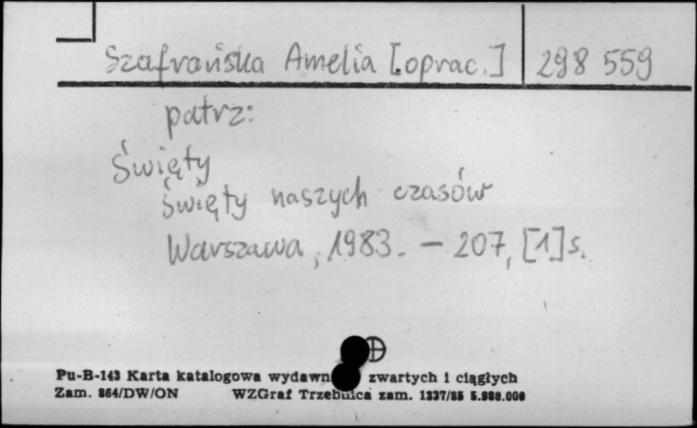 Szafrańska Amelia [oprac.] 298 559
patrz:
Święty
święty naszych czasów
Warszawa, 1983. – 207, [1] s.
Pu-B-143 Karta katalogowa wydawn zwartych i ciągłych
Zam. 864/DW/ON WZGraf Trzebnica zam. 1337/85 5.980.000